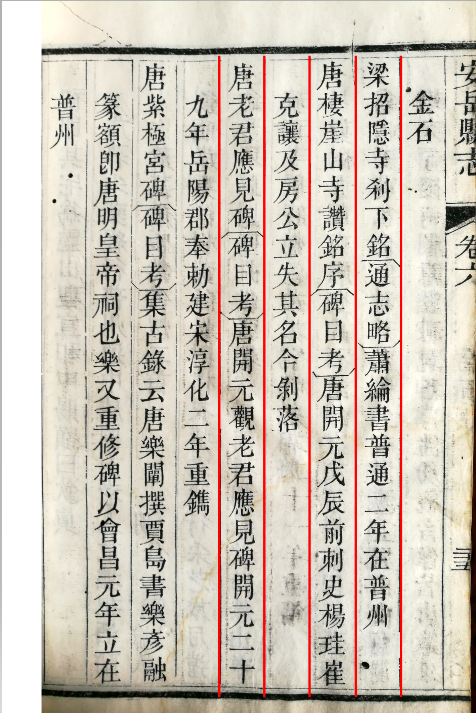 安岳縣志 卷六
金石
梁招隱寺刹下銘通志略蕭綸書普通二年在普州
唐棲崖山寺讚銘序碑目考唐開元戊辰前刺史楊珪崔
克讓及房公立失其名今剝落
唐老君應見碑碑目考唐開元觀老君應見碑開元二十
九年岳陽郡奉勅建宋淳化二年重鐫
唐紫極宮碑碑目考集古錄云唐樂闡撰賈島書樂彥融
篆額卽唐明皇帝祠也樂又重修碑以會昌元年立在
普州